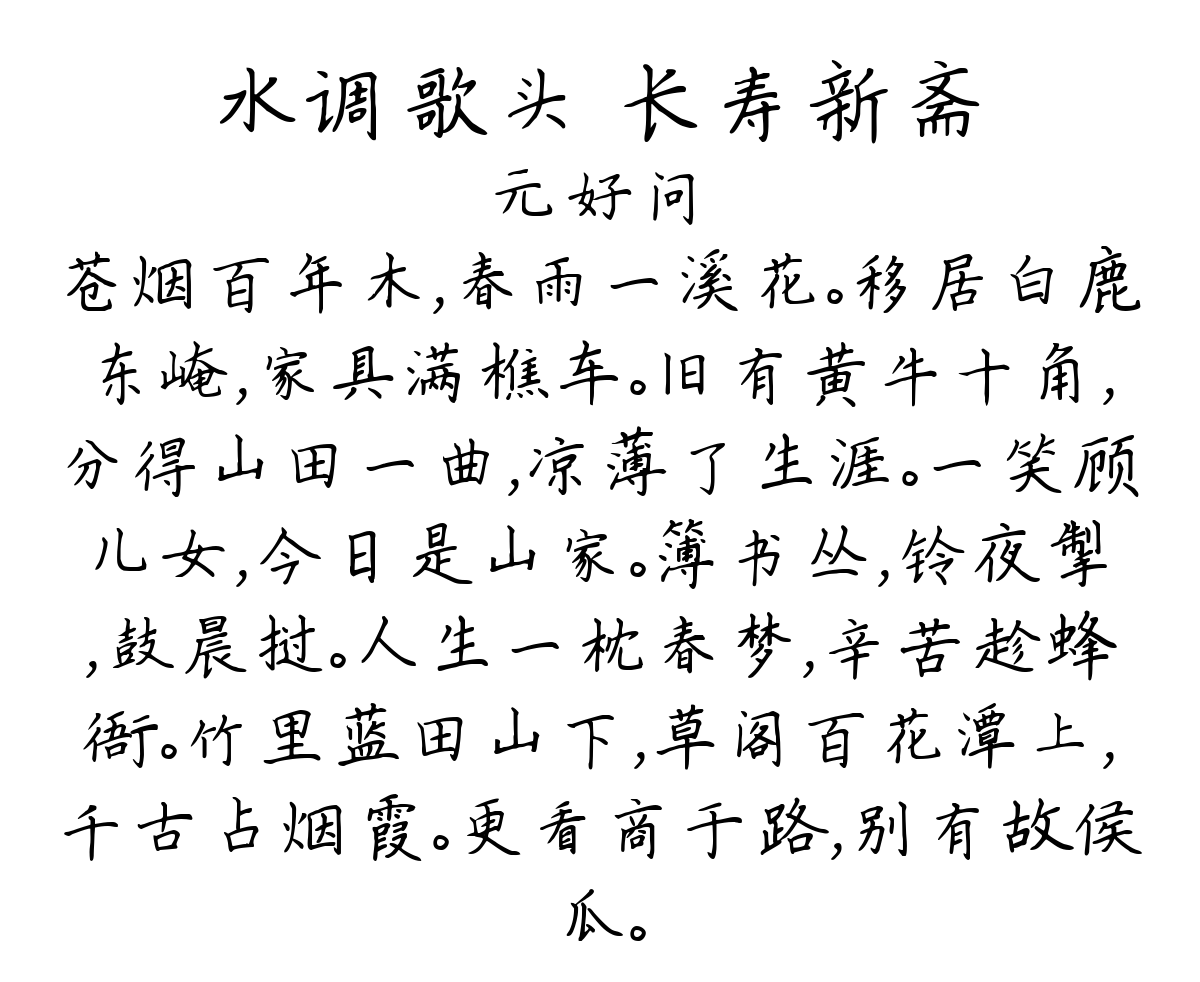 水调歌头 长寿新斋
元好问
苍烟百年木,春雨一溪花。移居白鹿
东崦,家具满樵车。旧有黄牛十角,
分得山田一曲,凉薄了生涯。一笑顾
儿女,今日是山家。簿书丛,铃夜掣
,鼓晨挝。人生一枕春梦,辛苦趁蜂
衙。竹里蓝田山下,草阁百花潭上,
千古占烟霞。更看商于路,别有故侯
瓜。